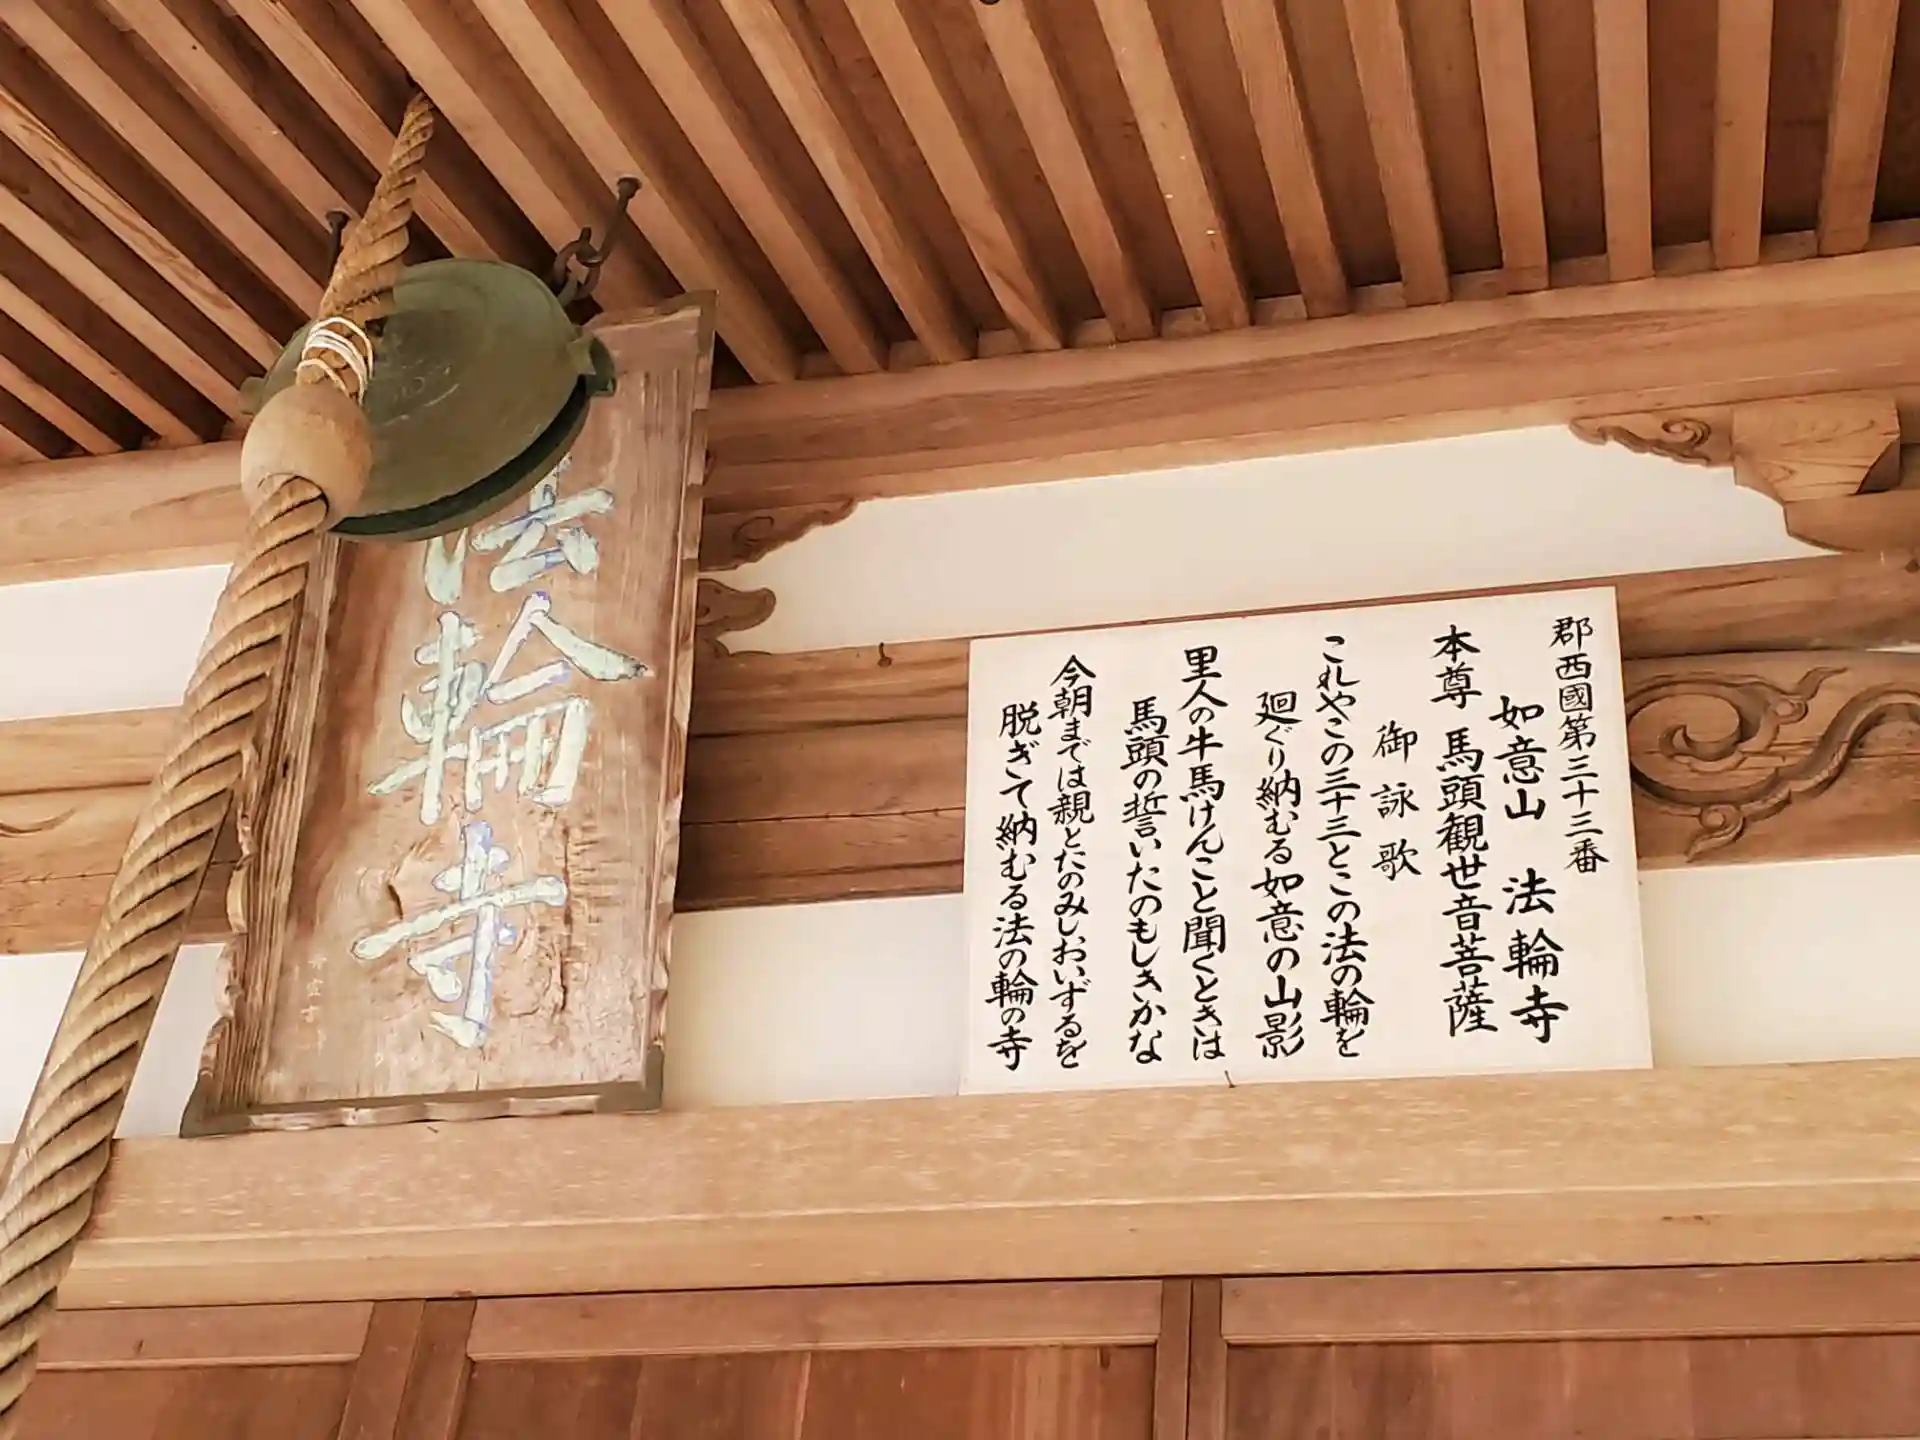 法輪寺
郡西國第三十三番
如意山 法輪寺
本尊 馬頭観世音菩薩
御詠歌
これやこの三十三とこの法の輪を
廻ぐり納むる如意の山影
里人の牛馬けんこと聞くときは
馬頭の誓いたのもしきかな
今朝までは親とたのみしおいずるを
脱ぎて納むる法の輪の寺